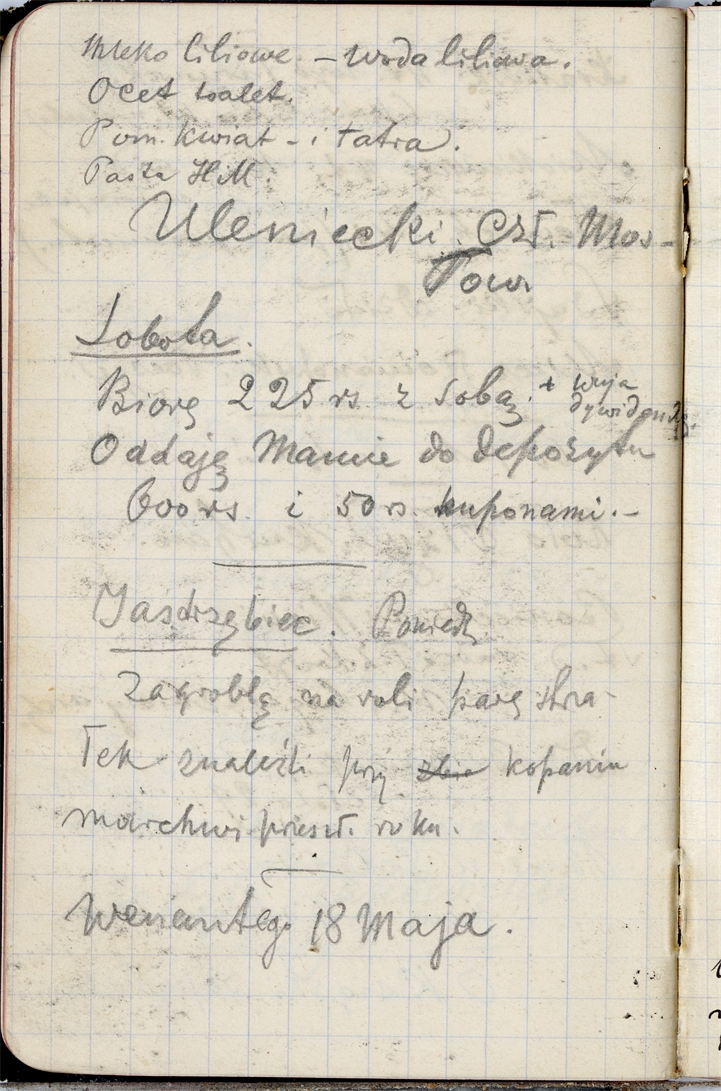 Mleko liliowe – woda liliowa.
Ocet toalet.
Pom. kwiat – i tatra.
Pasta H.M.
Uleniecki. Czł. Mos-
Tow.
Sobota.
Biorę 225 rs z sobą. + wuja
dywidendę.
Oddaję Mamie do depozytu
600 rs i 50 rs. kuponami. –
Jastrzębiec. Poniedz.
Zagroblą na roli parę skra-
łek znaleźli przy kopaniu
marchwi przeszł. roku.
Wenantego 18 Maja.